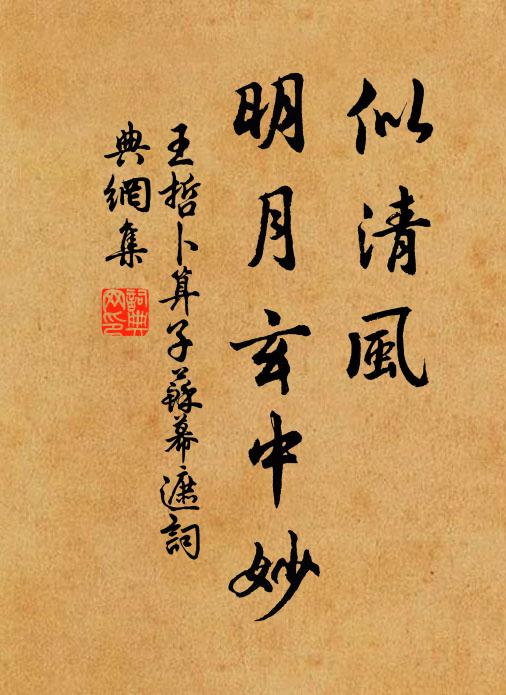 似清風
明月玄中妙
王哲卜算子蘇幕遮詞
典網集
詞典
网印